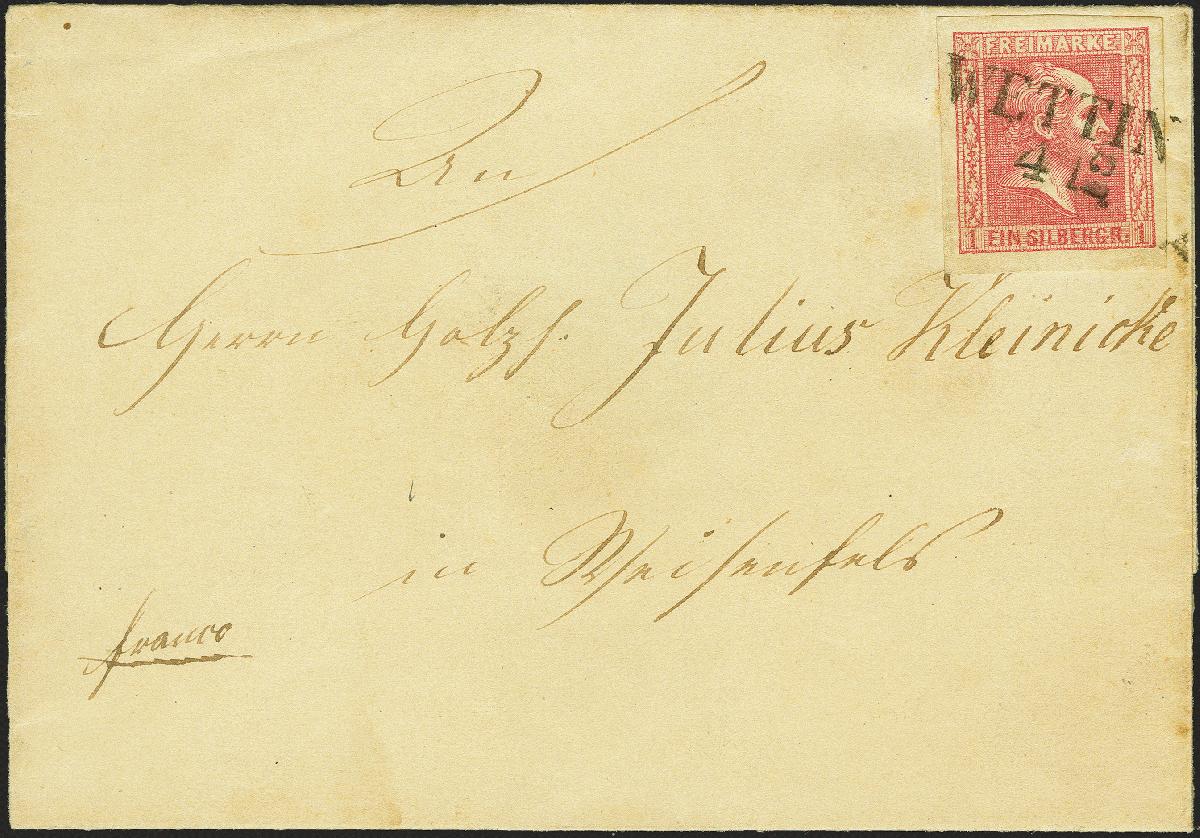 FREIMARKE
WETTIN
4 12
1 EIN SILBERGR. 1
An
Herrn Holzh. Julius Kleinicke
in Weisenfels
franco